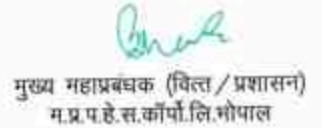 मुख्य महाप्रबंधक (वित्त / प्रशासन)
म.प्र.प.हे.स.कॉर्पो.लि.भोपाल